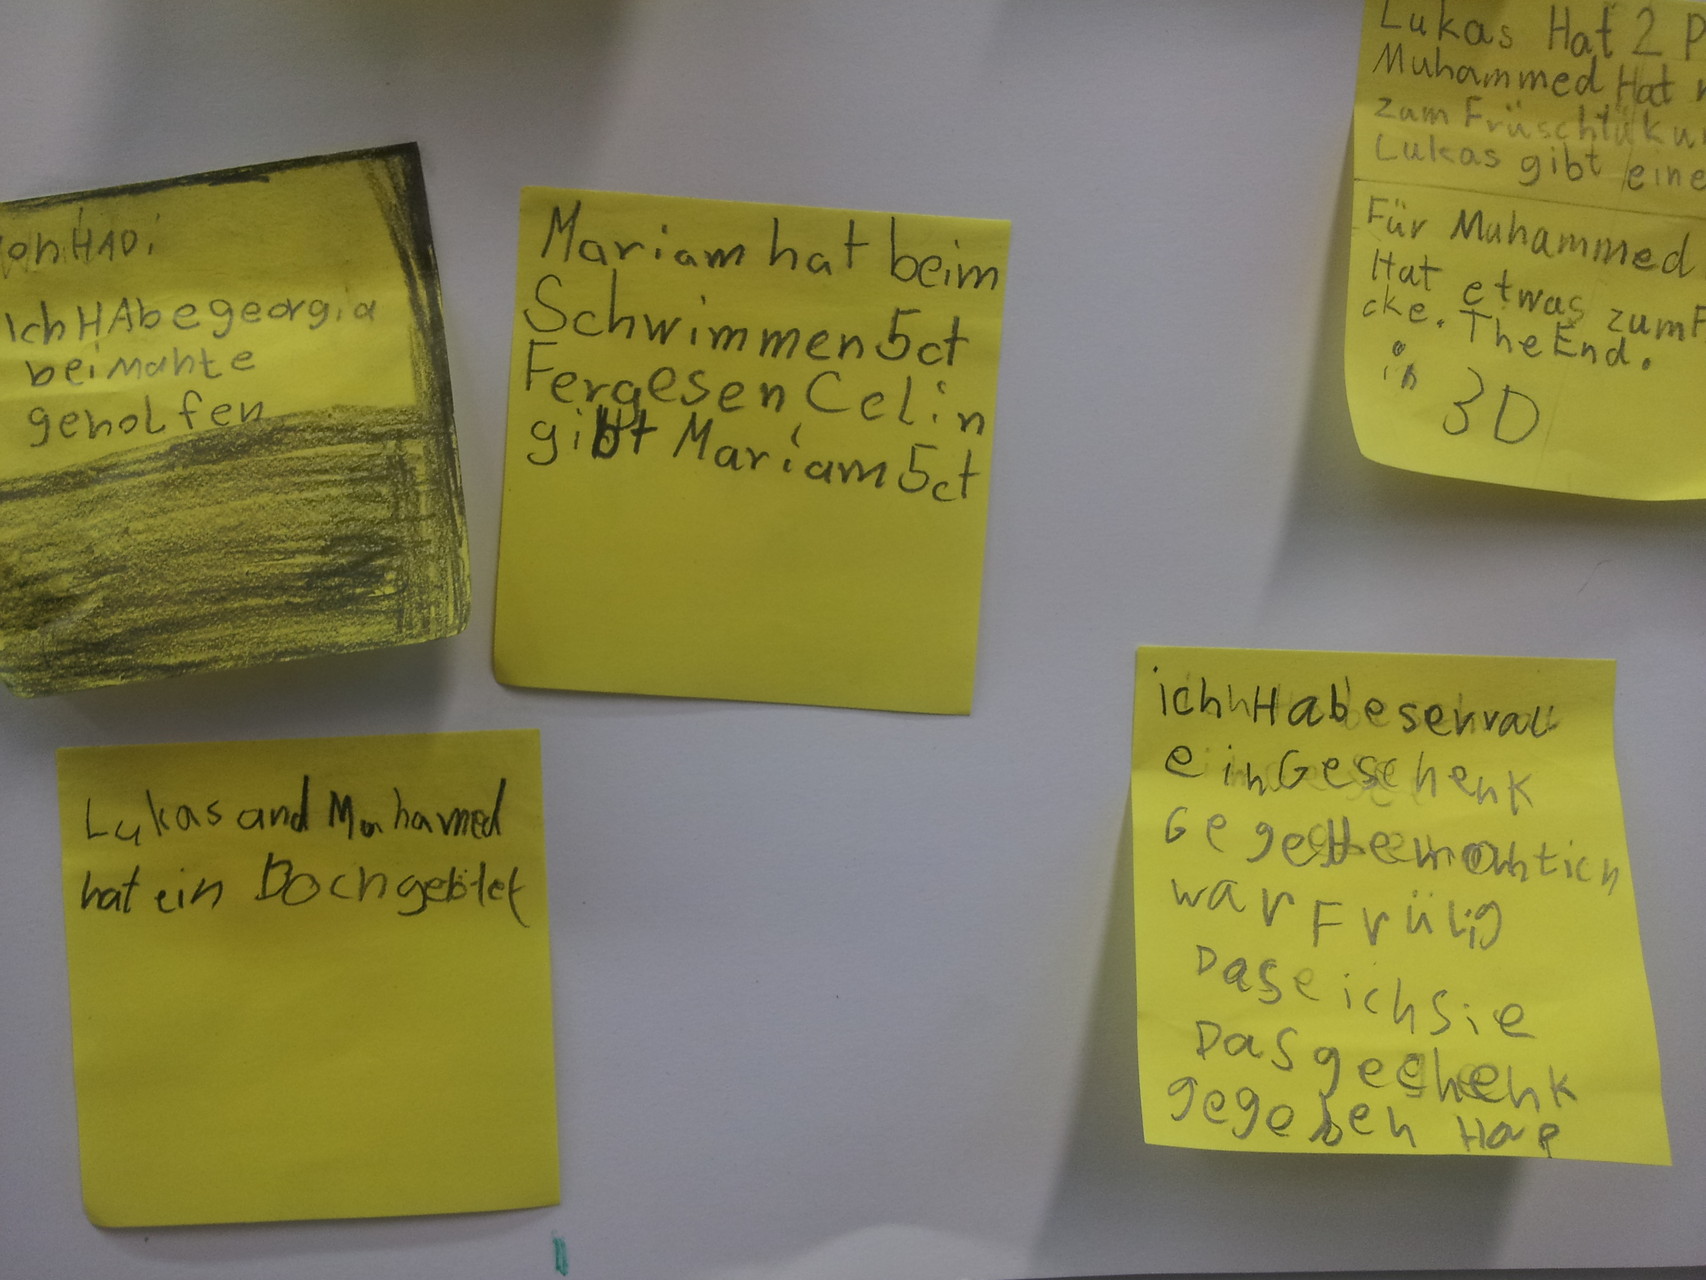 von HADi
Ich HAbe georgia
bei mahte
geholfen
Mariam hat beim
Schwimmen 5ct
Fergesen Celin
gibt Mariam 5ct
Lukas Hat 2
Muhammed Hat
zum Früschtükü
Lukas gibt eine
Für Muhammed
Hat etwas zum F
cke. The End.
in 3D
Lukas and Muhamed
hat ein Doch gebilet
ich Habe
ein Geschenk
ich
war Frülig
Dase ich sie
Das geschenk
gegeben Hap